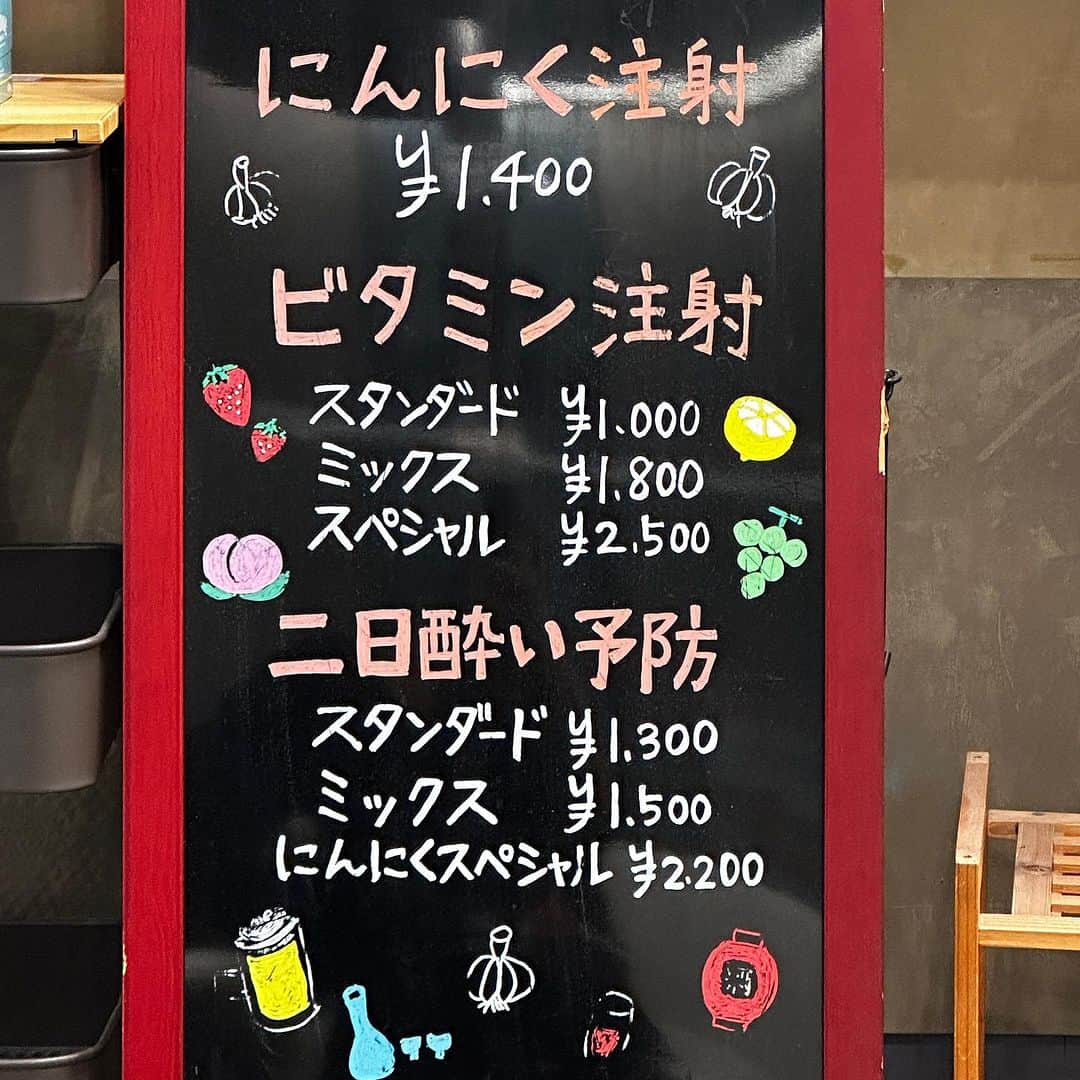 にんにく注射
¥1.400
ビタミン注射
スタンダード ¥1.000
ミックス ¥1.800
スペシャル ¥2.500
二日酔い予防
スタンダード ¥1.300
ミックス ¥1.500
にんにくスペシャル ¥2.200